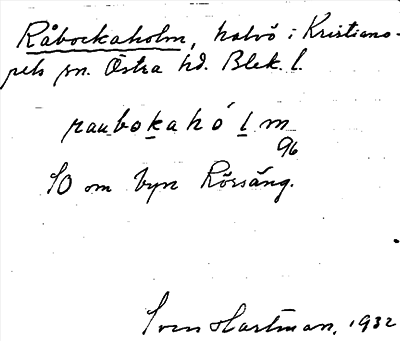 Råbockaholm, halvö i Kristiano-
pels sn. Östra hd. Blek. l.
raubokahólm
96
SO om byn Rörsäng.
Sven Hartman, 1932